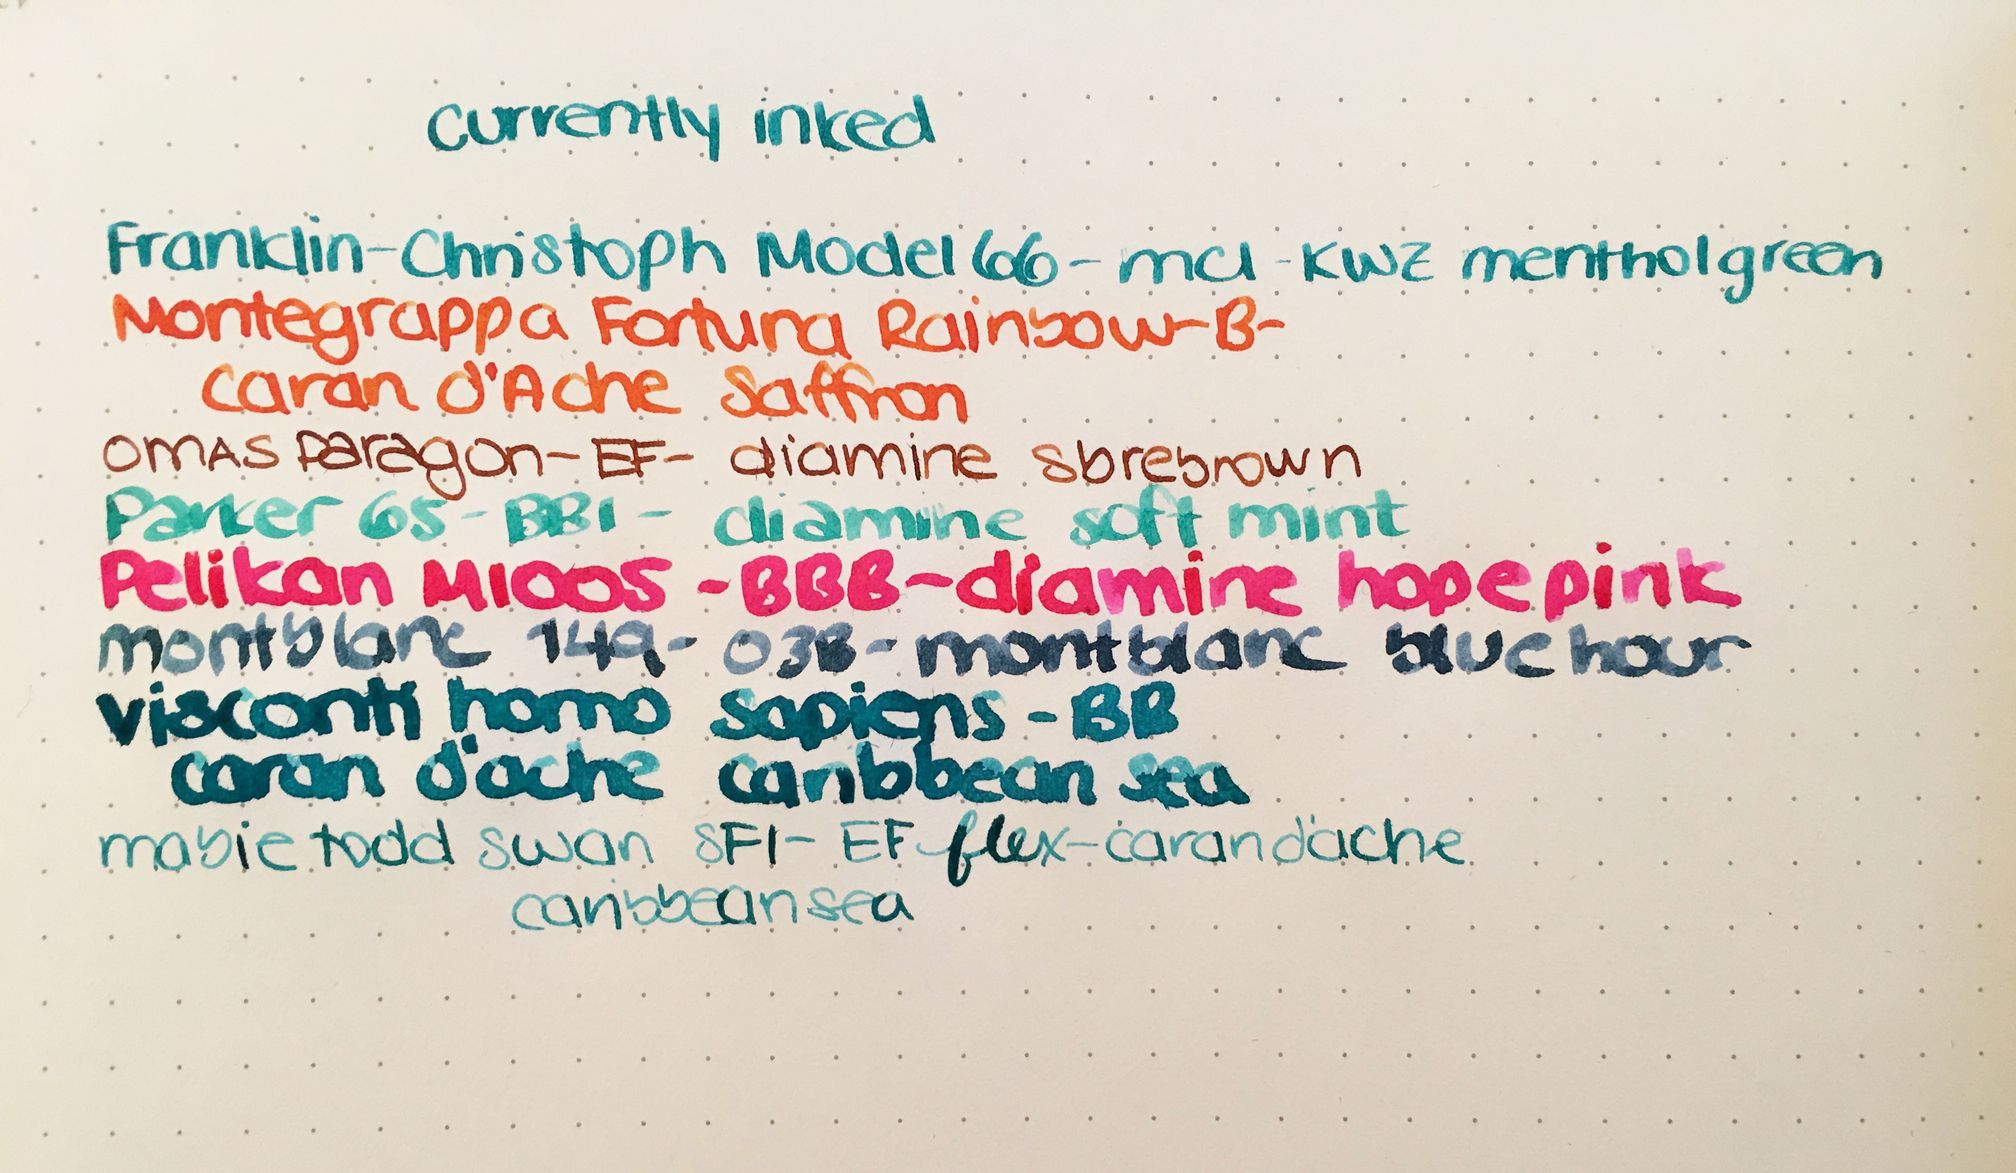 currently inked
Franklin-Christoph Model 66 - mcl - KWZ menthol green
Montegrappa Fortuna Rainbow - B -
Caran d'Ache Saffron
OMAS Paragon - EF - diamine sbrebrown
Parker 65 - BB1 - diamine soft mint
Pelikan M1005 - BBB - diamine hope pink
montblanc 149 - O3B - montblanc blue hour
visconti homo sapiens - BB
caran d'ache caribbean sea
mabie todd swan SF1 - EF flex - caran d'ache
caribbean sea